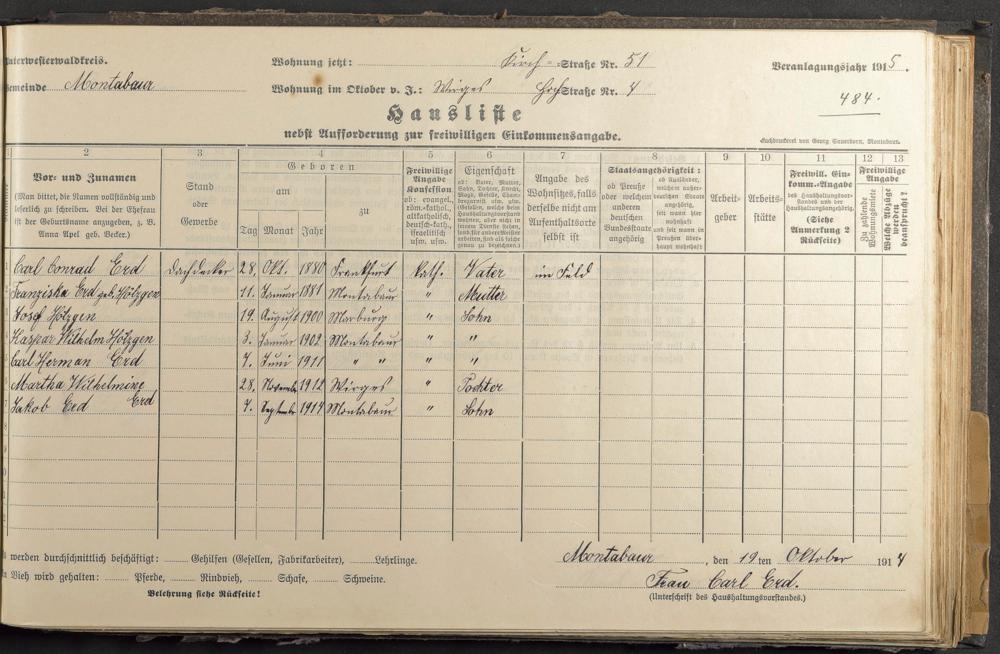 Unterwesterwaldkreis.
Wohnung jetzt: Kirch- Straße Nr. 51
Veranlagungsjahr 1915.
Gemeinde Montabaur
Wohnung im Oktober v. J.: Wirges Straße Nr. 4
484.
Hausliste
nebst Aufforderung zur freiwilligen Einkommensangabe.
Buchdruckerei von Georg Sauerborn, Montabaur.
2 3 4 5 6 7 8 9 10 11 12 13
Vor- und Zunamen
(Man bittet, die Namen vollständig und
leserlich zu schreiben. Bei der Ehefrau
ist der Geburtsname anzugeben, z. B.
Anna Apel geb. Becker.)
Stand
oder
Gewerbe
Geboren
am
zu
Tag Monat Jahr
Freiwillige
Angabe
Konfession
ob: evangel.,
röm.-kathol.,
altkatholisch,
deutsch-kath.,
israelitisch
usw. usw.
Eigenschaft
ob: Vater, Mutter,
Sohn, Tochter, Knecht,
Magd, Geselle,
Angabe des
Wohnsitzes, falls
derselbe nicht am
Aufenthaltsorte
selbst ist
Staatsangehörigkeit:
ob Preuße
oder welchem
anderen
deutschen
Bundesstaate
angehörig
ob Ausländer,
welchem außer-
deutschen Staate
angehörig,
seit wann hier
wohnhaft
und seit wann in
Preußen über-
haupt wohnhaft
Arbeit-
geber
Arbeits-
stätte
Freiwill. Ein-
komm.-Angabe
des Haushaltungsvor-
standes und der
Haushaltungsangehörig.
(Siehe
Anmerkung 2
Rückseite)
Freiwillige
Angabe
Zu zahlende
Wohnungsmiete
Welche Abzüge
werden
beansprucht?
Carl Conrad Erd Dachdecker 28. Okt. 1880 Frankfurt kath. Vater im Feld
Franziska Erd geb. Hölzgen 11. Januar 1881 Montabaur " Mutter
Josef Hölzgen 19. August 1900 Marburg " Sohn
Kaspar Wilhelm Hölzgen 3. Januar 1902 Montabaur " "
Carl Herman Erd 7. Juni 1911 " " " "
Martha Wilhelmine Erd 28. Novemb. 1912 Wirges " Tochter
Jakob Erd 7. Septemb. 1914 Montabaur " Sohn
werden durchschnittlich beschäftigt: Gehilfen (Gesellen, Fabrikarbeiter), Lehrlinge.
Montabaur, den 19 ten Oktober 1914
Vieh wird gehalten: Pferde, Rindvieh, Schafe, Schweine.
Frau Carl Erd.
Belehrung siehe Rückseite!
(Unterschrift des Haushaltungsvorstandes.)